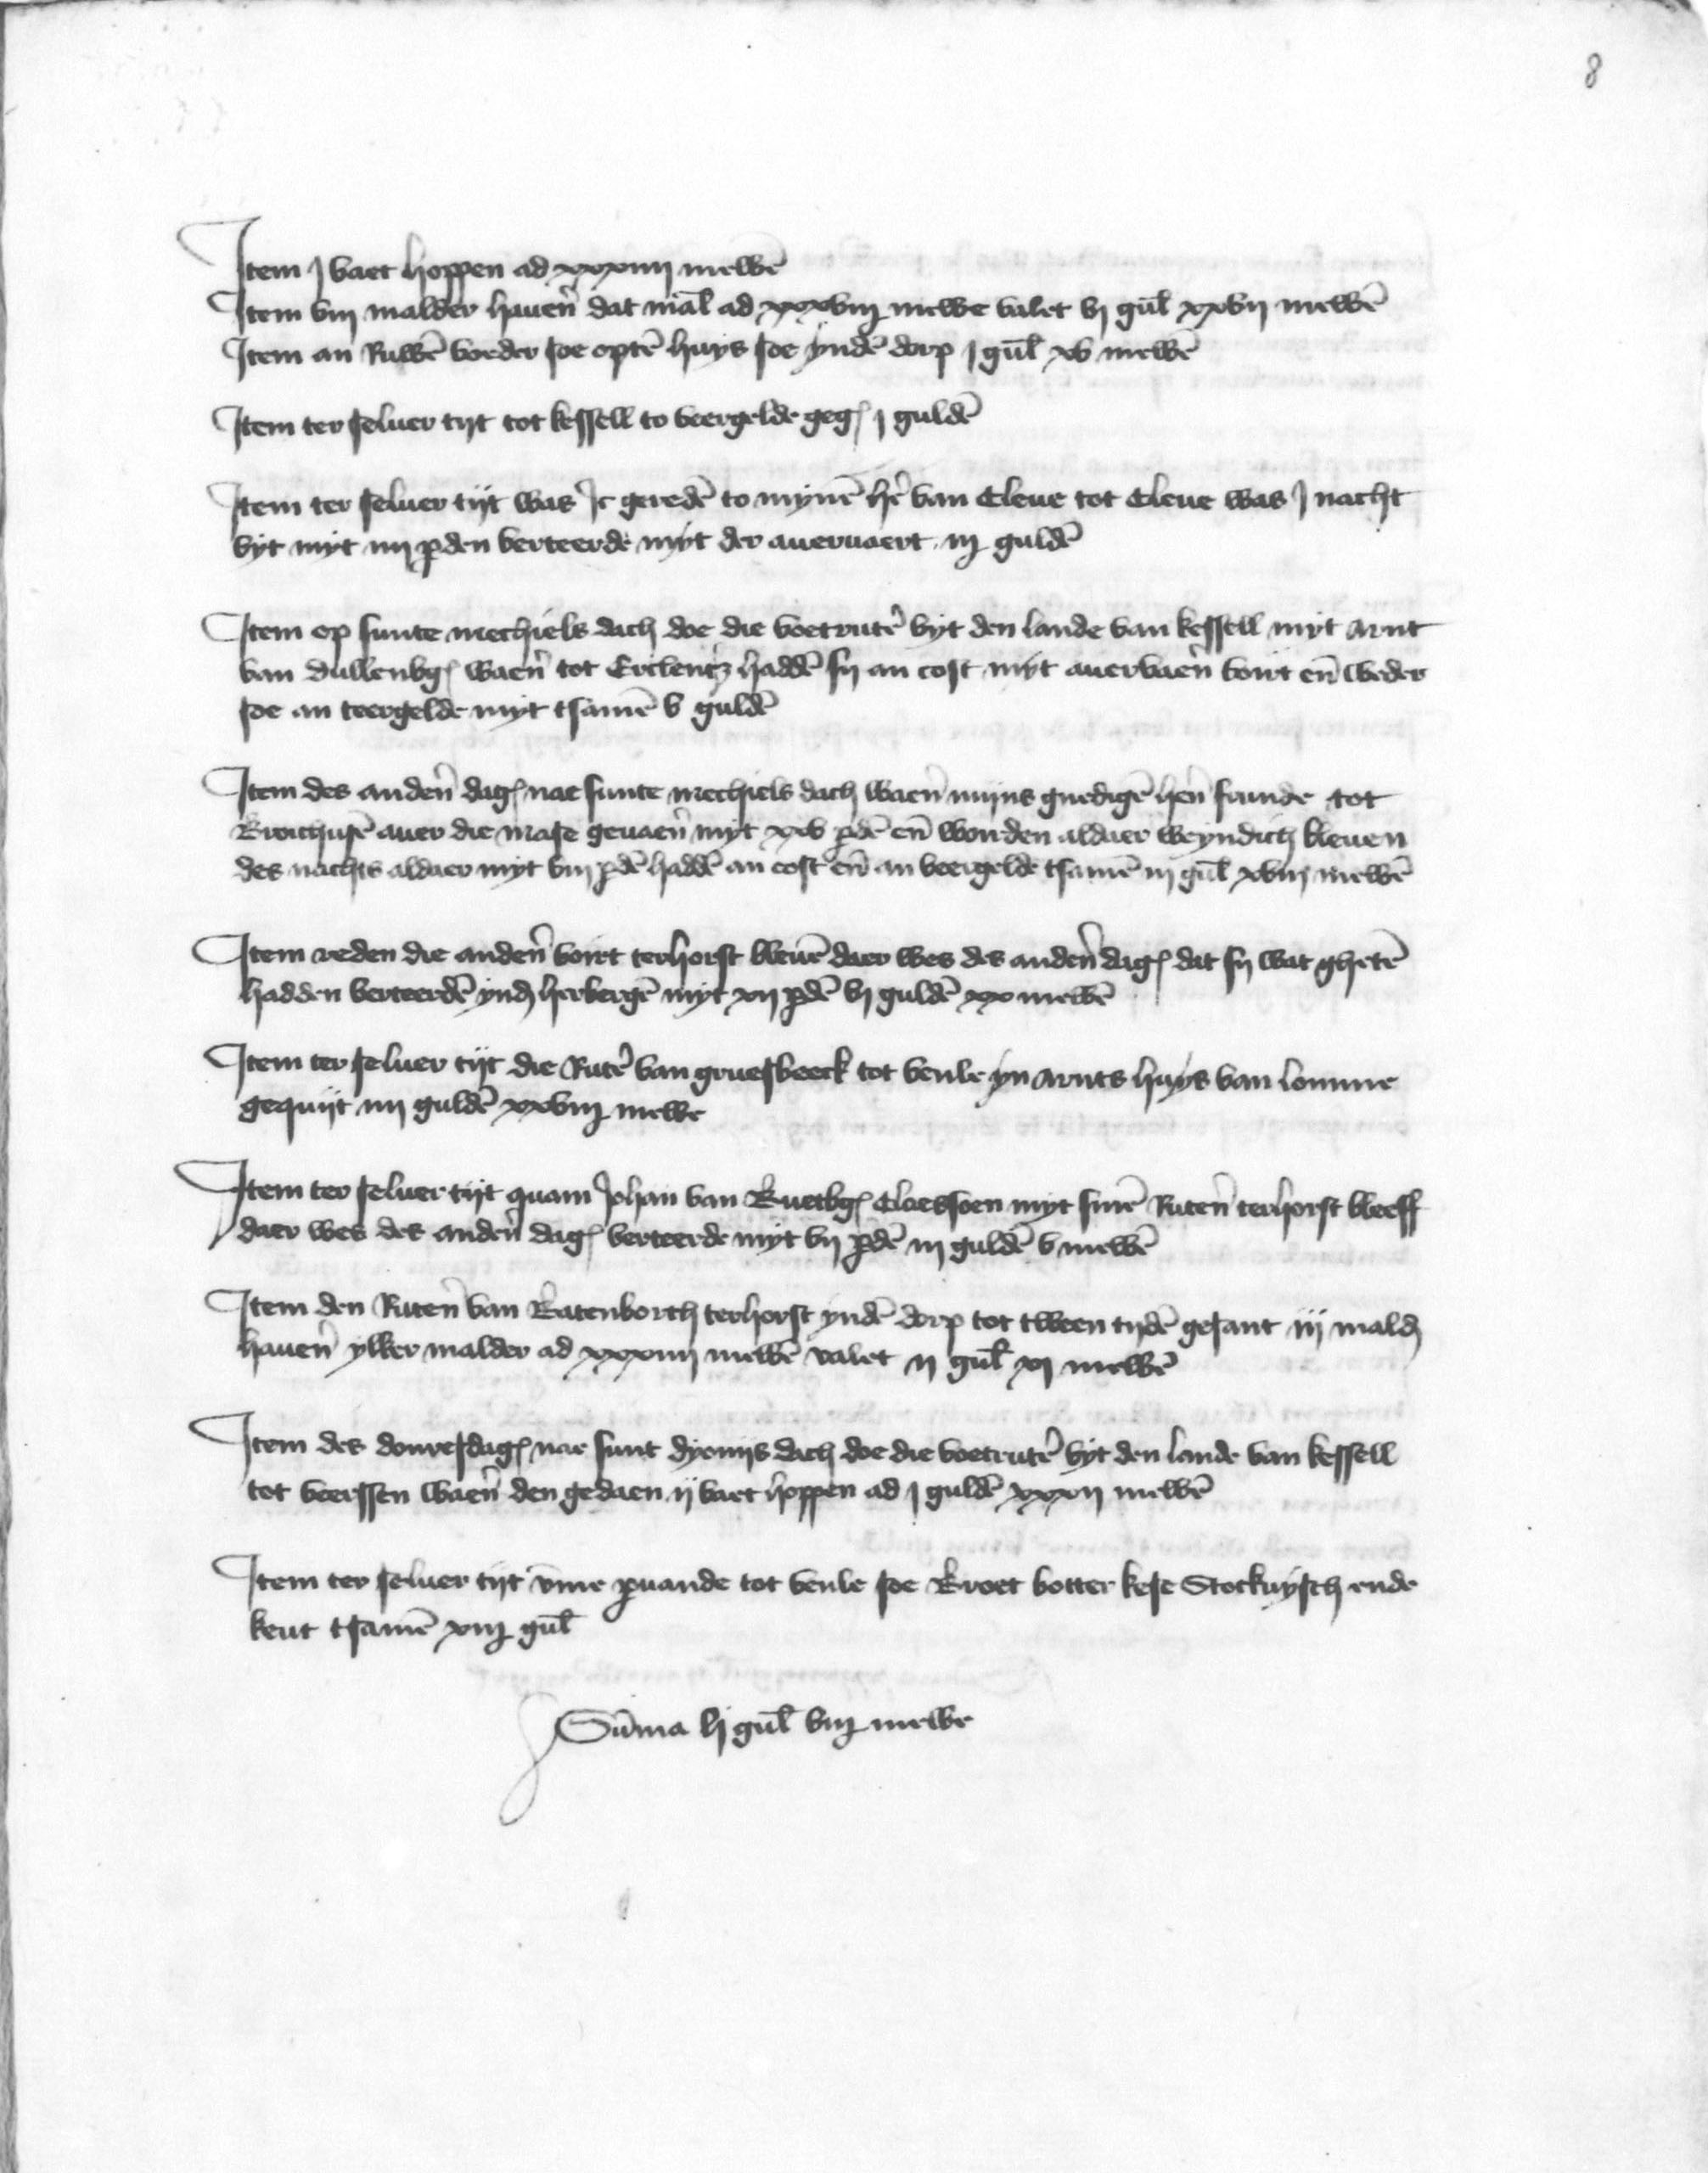 8
Item j vaet hoppen ad xxxiiij niewē
Item viij malder hauen̄ dat mal̄ ad xxxviij niewe valet vj gul̄ xxvij niewē
Item an Ruwē voeder soe optē huys soe yndē dorp j gul̄ xv niewē
Item ter seluer tijt tot kessell to veergelde geg j guldē
Item ter seluer tijt was Ic geredē to mynē hē van Cleue tot Cleue was j nacht
vyt myt iiij pden verteerde myt der aueruaert iij guldē
Item op sunte mechiels dach doe die voetrutē vyt den lande van kessell myt Arnt
van dullenbg waen̄ tot Erclentz haddē sy an cost myt auervaen̄ voirt en̄ weder
soe an teergelde myt tsamē v guldē
Item des anden̄ dag nae sunte mechiels dach waen̄ mijns gnedigē hen̄ frunde tot
Broichusē auer die mase geuaen̄ myt xxv pdē en̄ worden aldaer weyndich bleuen
des nachts aldaer myt viij pdē haddē an cost en̄ an veergelde tsamē iij gul̄ xviij niewē
Item reden die anden̄ voirt terhorst bleuē daer wes des anden̄ dag dat sy wat ghetē
hadden verteerdē ynd herbergē myt xij pdē vj guldē xx niewē
Item ter seluer tijt die Rutē van gruesbeeck tot venle yn Arnts huys van lomme
gequijt iiij guldē xxviij niewe
Item ter seluer tijt quam Johan van Buerbg Claessoen myt sinē Ruten̄ terhorst bleeff
daer wes des anden̄ dag verteerde myt vij pdē iij guldē v niewē
Item den Ruten̄ van Batenborch terhorst yndē dorp tot tween tydē gesant iij mald
hauen̄ ylker malder ad xxxiiij niewē valet ij gul̄ xj niewē
Item des donresdag nae sunt dyonijs dach doe die voetrutē vyt den lande van kessell
tot veerssen waen̄ den gedaen ij vaet hoppen ad j guldē xxxij niewē
Item ter seluer tijt vm̄e pvande tot venle soe Broet botter kese Stockuysch ende
keut tsamē xiij gul̄
Sum̄a lj gul̄ viij niewe